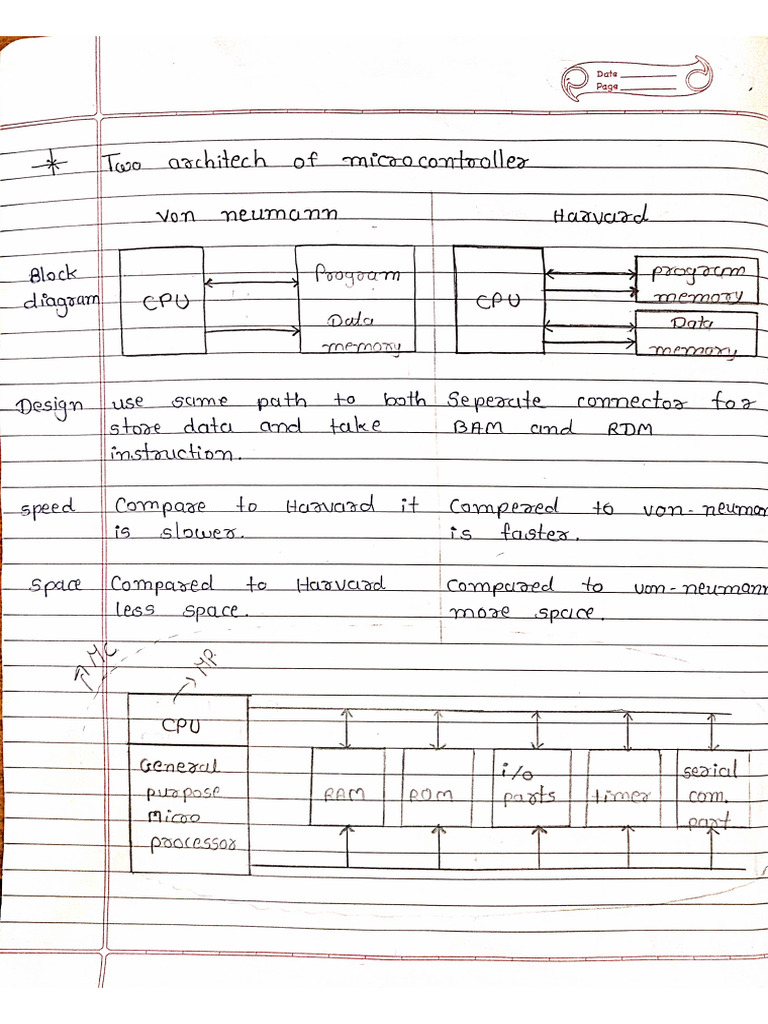 Date
Page
* Two architech of microcontroller
von neumann Harvard
Block diagram
CPU
Program
Data
memory
CPU
program
memory
Data
memory
Design use same path to both Seperate connector for
store data and take BAM and RDM
instruction.
speed Compare to Harvard it Compered to von-neuman
is slower. is faster.
space Compared to Harvard Compared to von-neumann
less space. more space.
MC
MP
CPU
General
purpose
Micro
processor
RAM
ROM
i/o
parts
timer
serial
com.
part